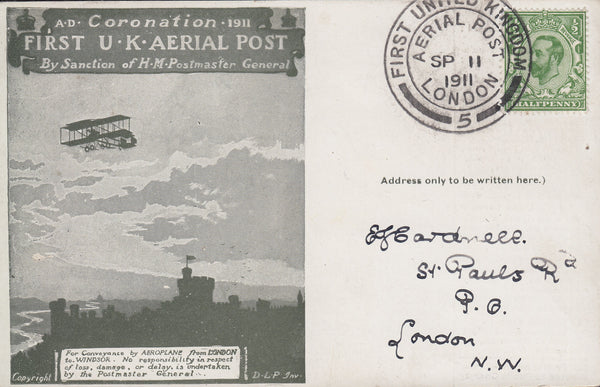 A·D· Coronation · 1911
FIRST U·K·AERIAL POST
By Sanction of H·M·Postmaster General
For Conveyance by AEROPLANE from LONDON
to WINDSOR. No responsibility in respect
of loss, damage, or delay, is undertaken
by the Postmaster General
Copyright
D·L·P Inv·
FIRST UNITED KINGDOM
AERIAL POST
SP 11
1911
LONDON
5
HALFPENNY
Address only to be written here.)
Cardnell.
St Pauls Rd
P.O.
London
N.W.